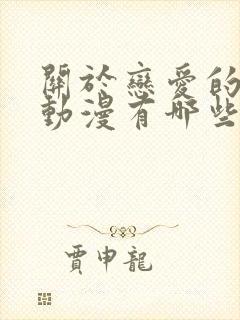 關於戀愛的
動漫有哪些
賈申龍